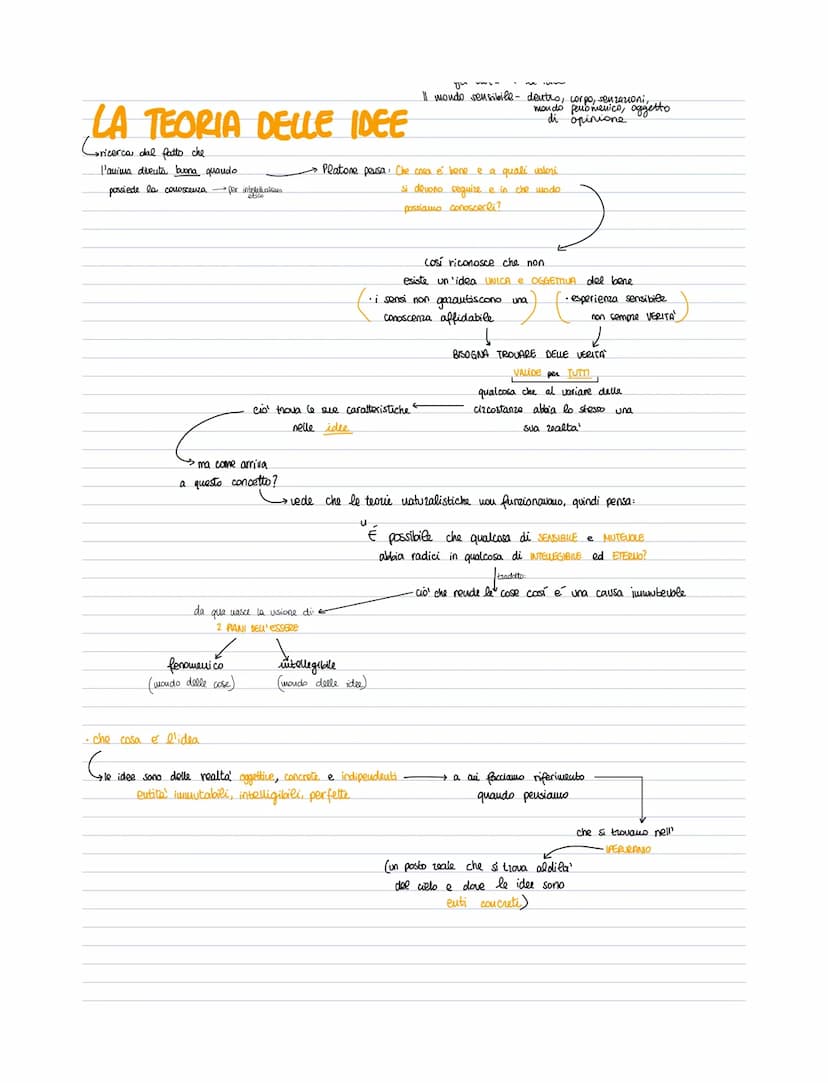 Il mondo sensibile - dentro, corpo, sensazioni,
mondo fenomenico, oggetto
di opinione
LA TEORIA DELLE IDEE
ricerca dal fatto che
l'anima diventa buona quando
possiede la conoscenza → per intellettualismo
etico
Platone pensa: Che cosa é bene e a quali valori
si devono seguire e in che modo
possiamo conoscerli?
così riconosce che non
esiste un'idea UNICA e OGGETTIVA del bene
(· i sensi non garantiscono una
conoscenza affidabile)
(· esperienza sensibile
non sempre VERITA')
BISOGNA TROVARE DELLE VERITA'
VALIDE per TUTTI
qualcosa che al variare della
circostanze abbia lo stesso una
sua realta'
ciò trova le sue caratteristiche
nelle idee
ma come arriva
a questo concetto?
vede che le teorie naturalistiche non funzionavano, quindi pensa:
"É possibile che qualcosa di SENSIBILE e MUTEVOLE
abbia radici in qualcosa di INTELLEGIBILE ed ETERNO?
tradotto:
ciò che rende le cose così é una causa immutevole
da qua nasce la visione di:
2 PIANI DELL'ESSERE
fenomenico
(mondo delle cose)
intellegibile
(mondo delle idee)
· che cosa é l'idea
le idee sono delle realta' oggettive, concrete e indipendenti
entità immutabili, intelligibili, perfette
a cui facciamo riferimento
quando pensiamo
che si trovano nell'
IPERURANIO
(un posto reale che si trova aldila'
del cielo e dove le idee sono
enti concreti)